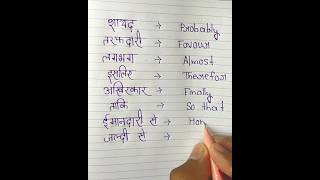 शायद → Probably
तरफदारी → Favour
लगभग → Almost
इसलिए → Therefor
आखिरकार → Finally
ताकि → So that
ईमानदारी से → Hon
जल्दी से →